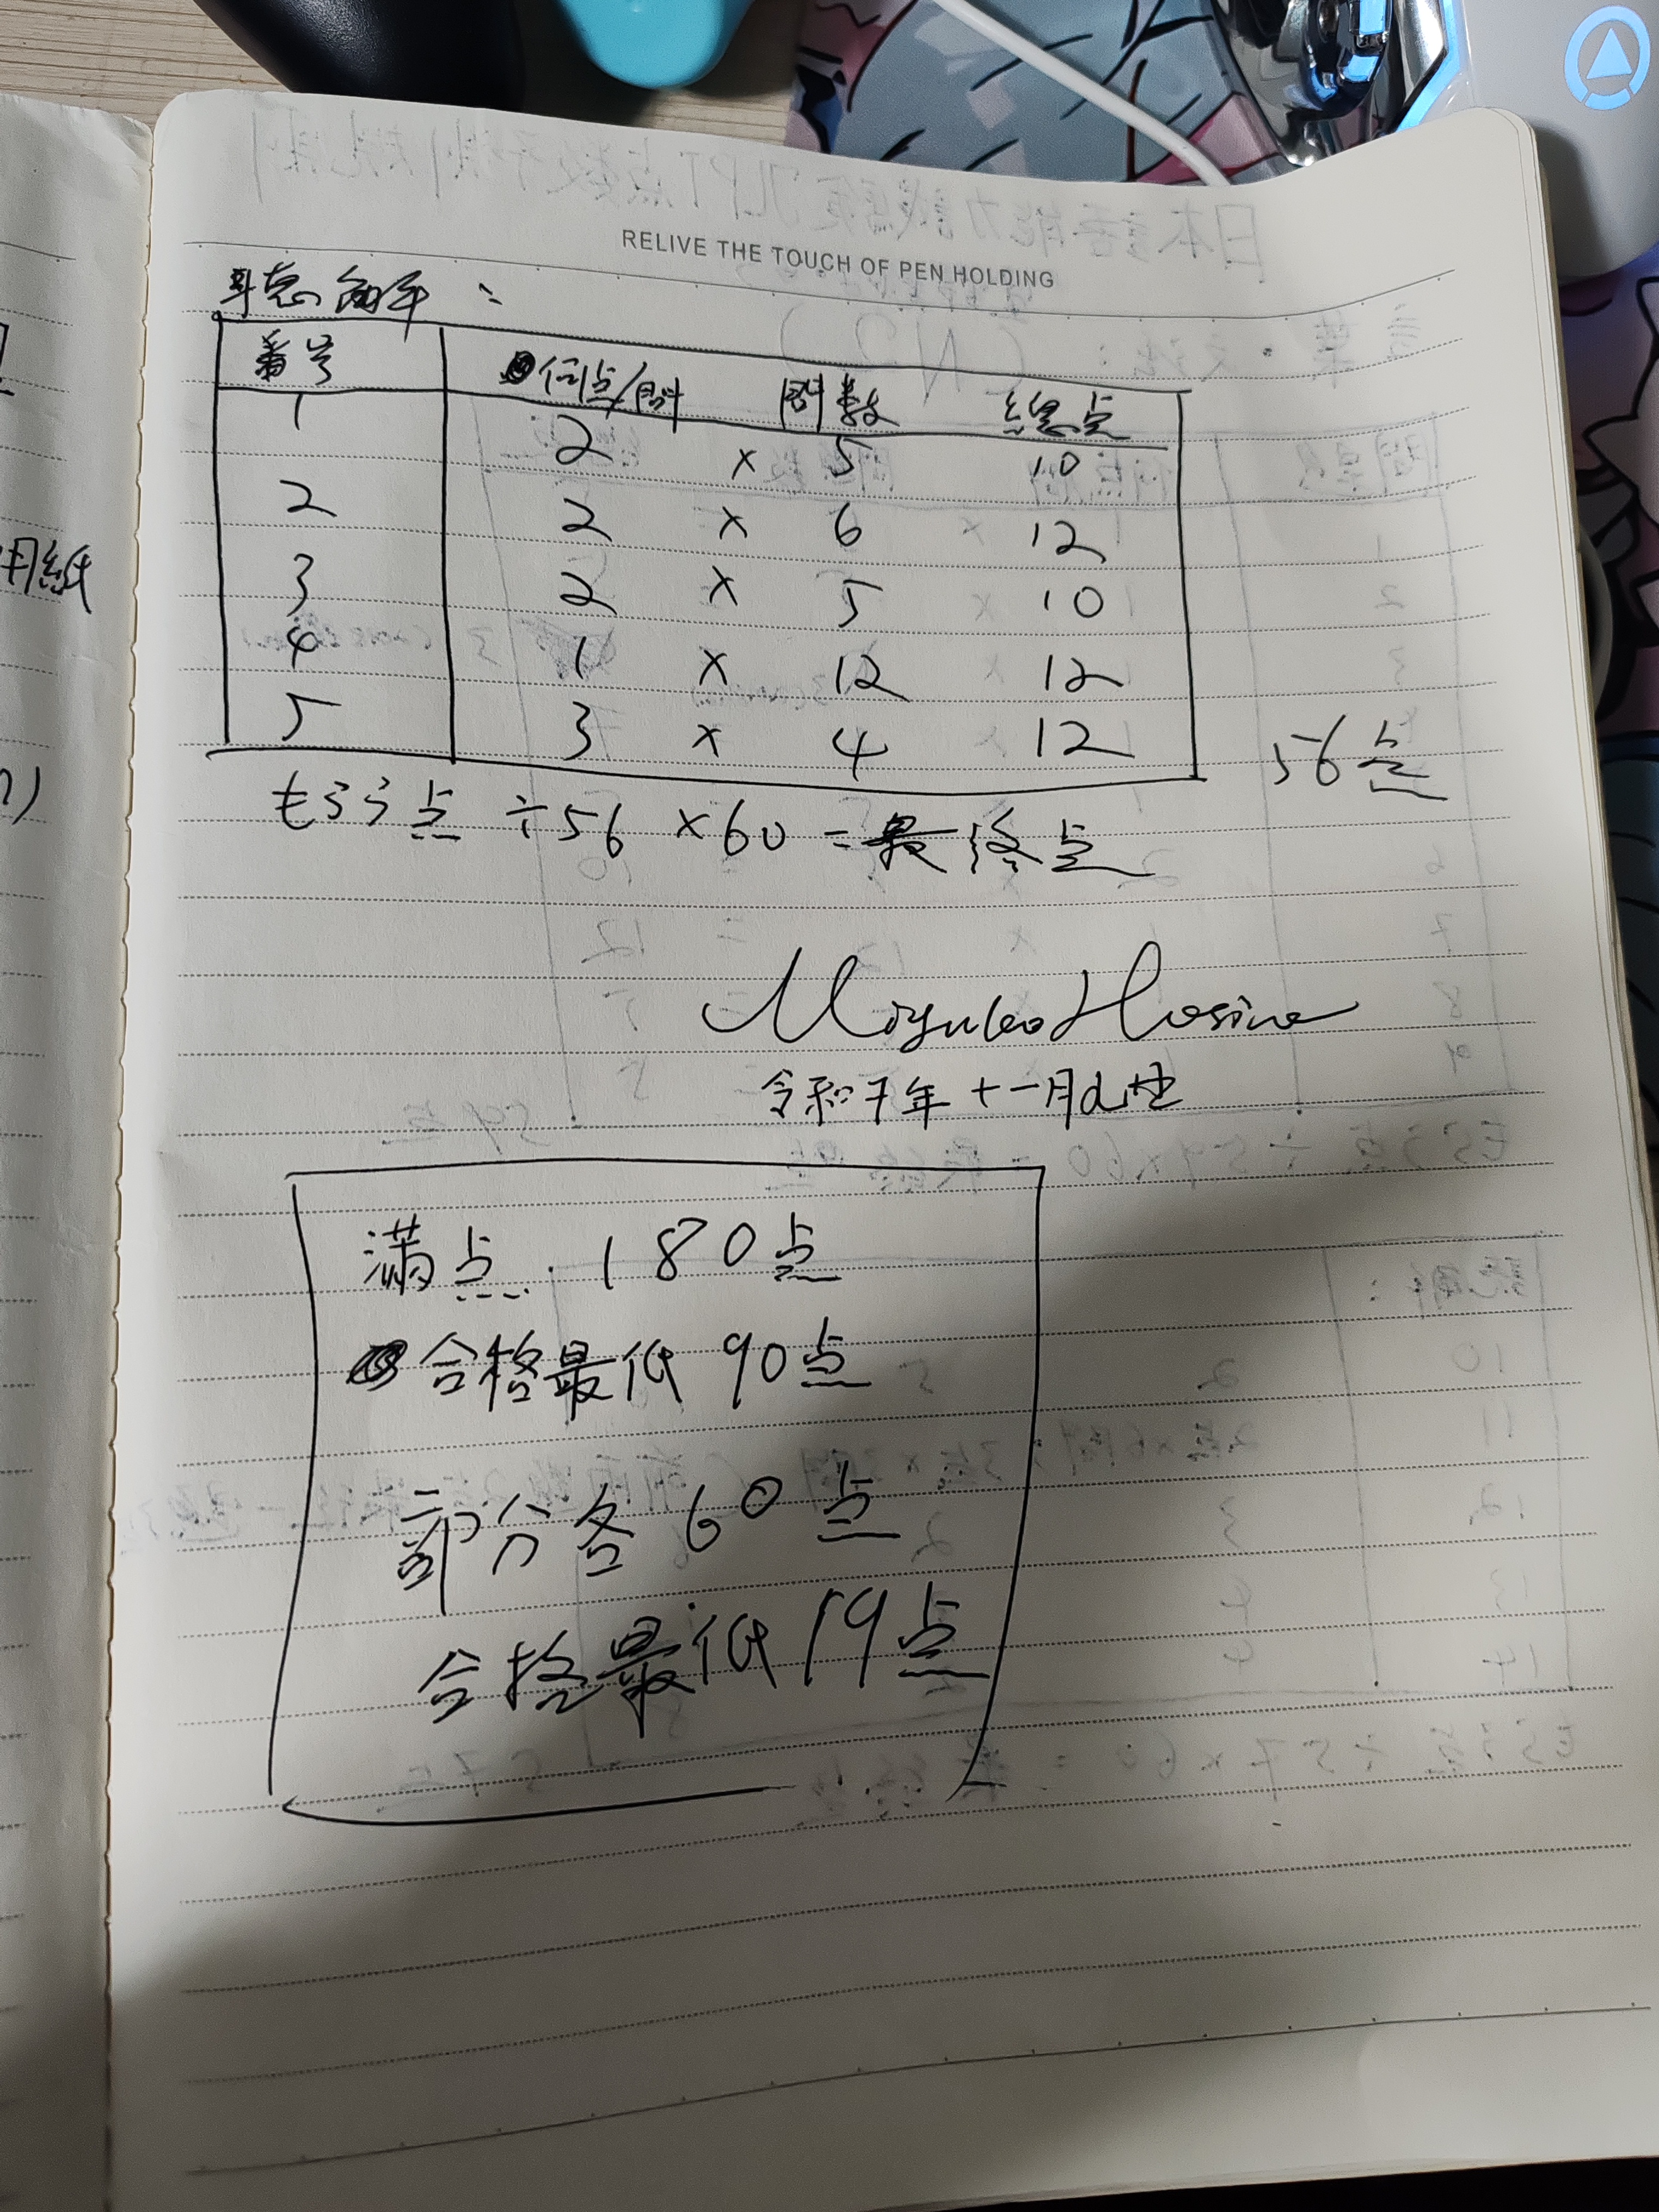 RELIVE THE TOUCH OF PEN HOLDING
聴解：
番号 何点/問 問数 総点
1 2 × 5 10
2 2 × 6 12
3 2 × 5 10
4 1 × 12 12
5 3 × 4 12
56点
もらう点 ÷56 ×60 = 最終点
令和7年十一月
満点 180点
合格最低 90点
部分各 60点
合格最低 19点
用紙